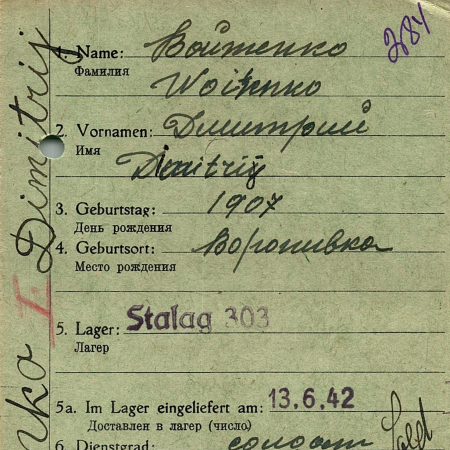 284
1. Name: Войтенко
Фамилия
Woitenko
2. Vornamen: Дмитрий
Имя
Dmitrij
3. Geburtstag: 1907
День рождения
4. Geburtsort: Воронивка
Место рождения
5. Lager: Stalag 303
Лагер
5a. Im Lager eingeliefert am: 13.6.42
Доставлен в лагер (число)
6. Dienstgrad: солдат Sold
Dimitrij